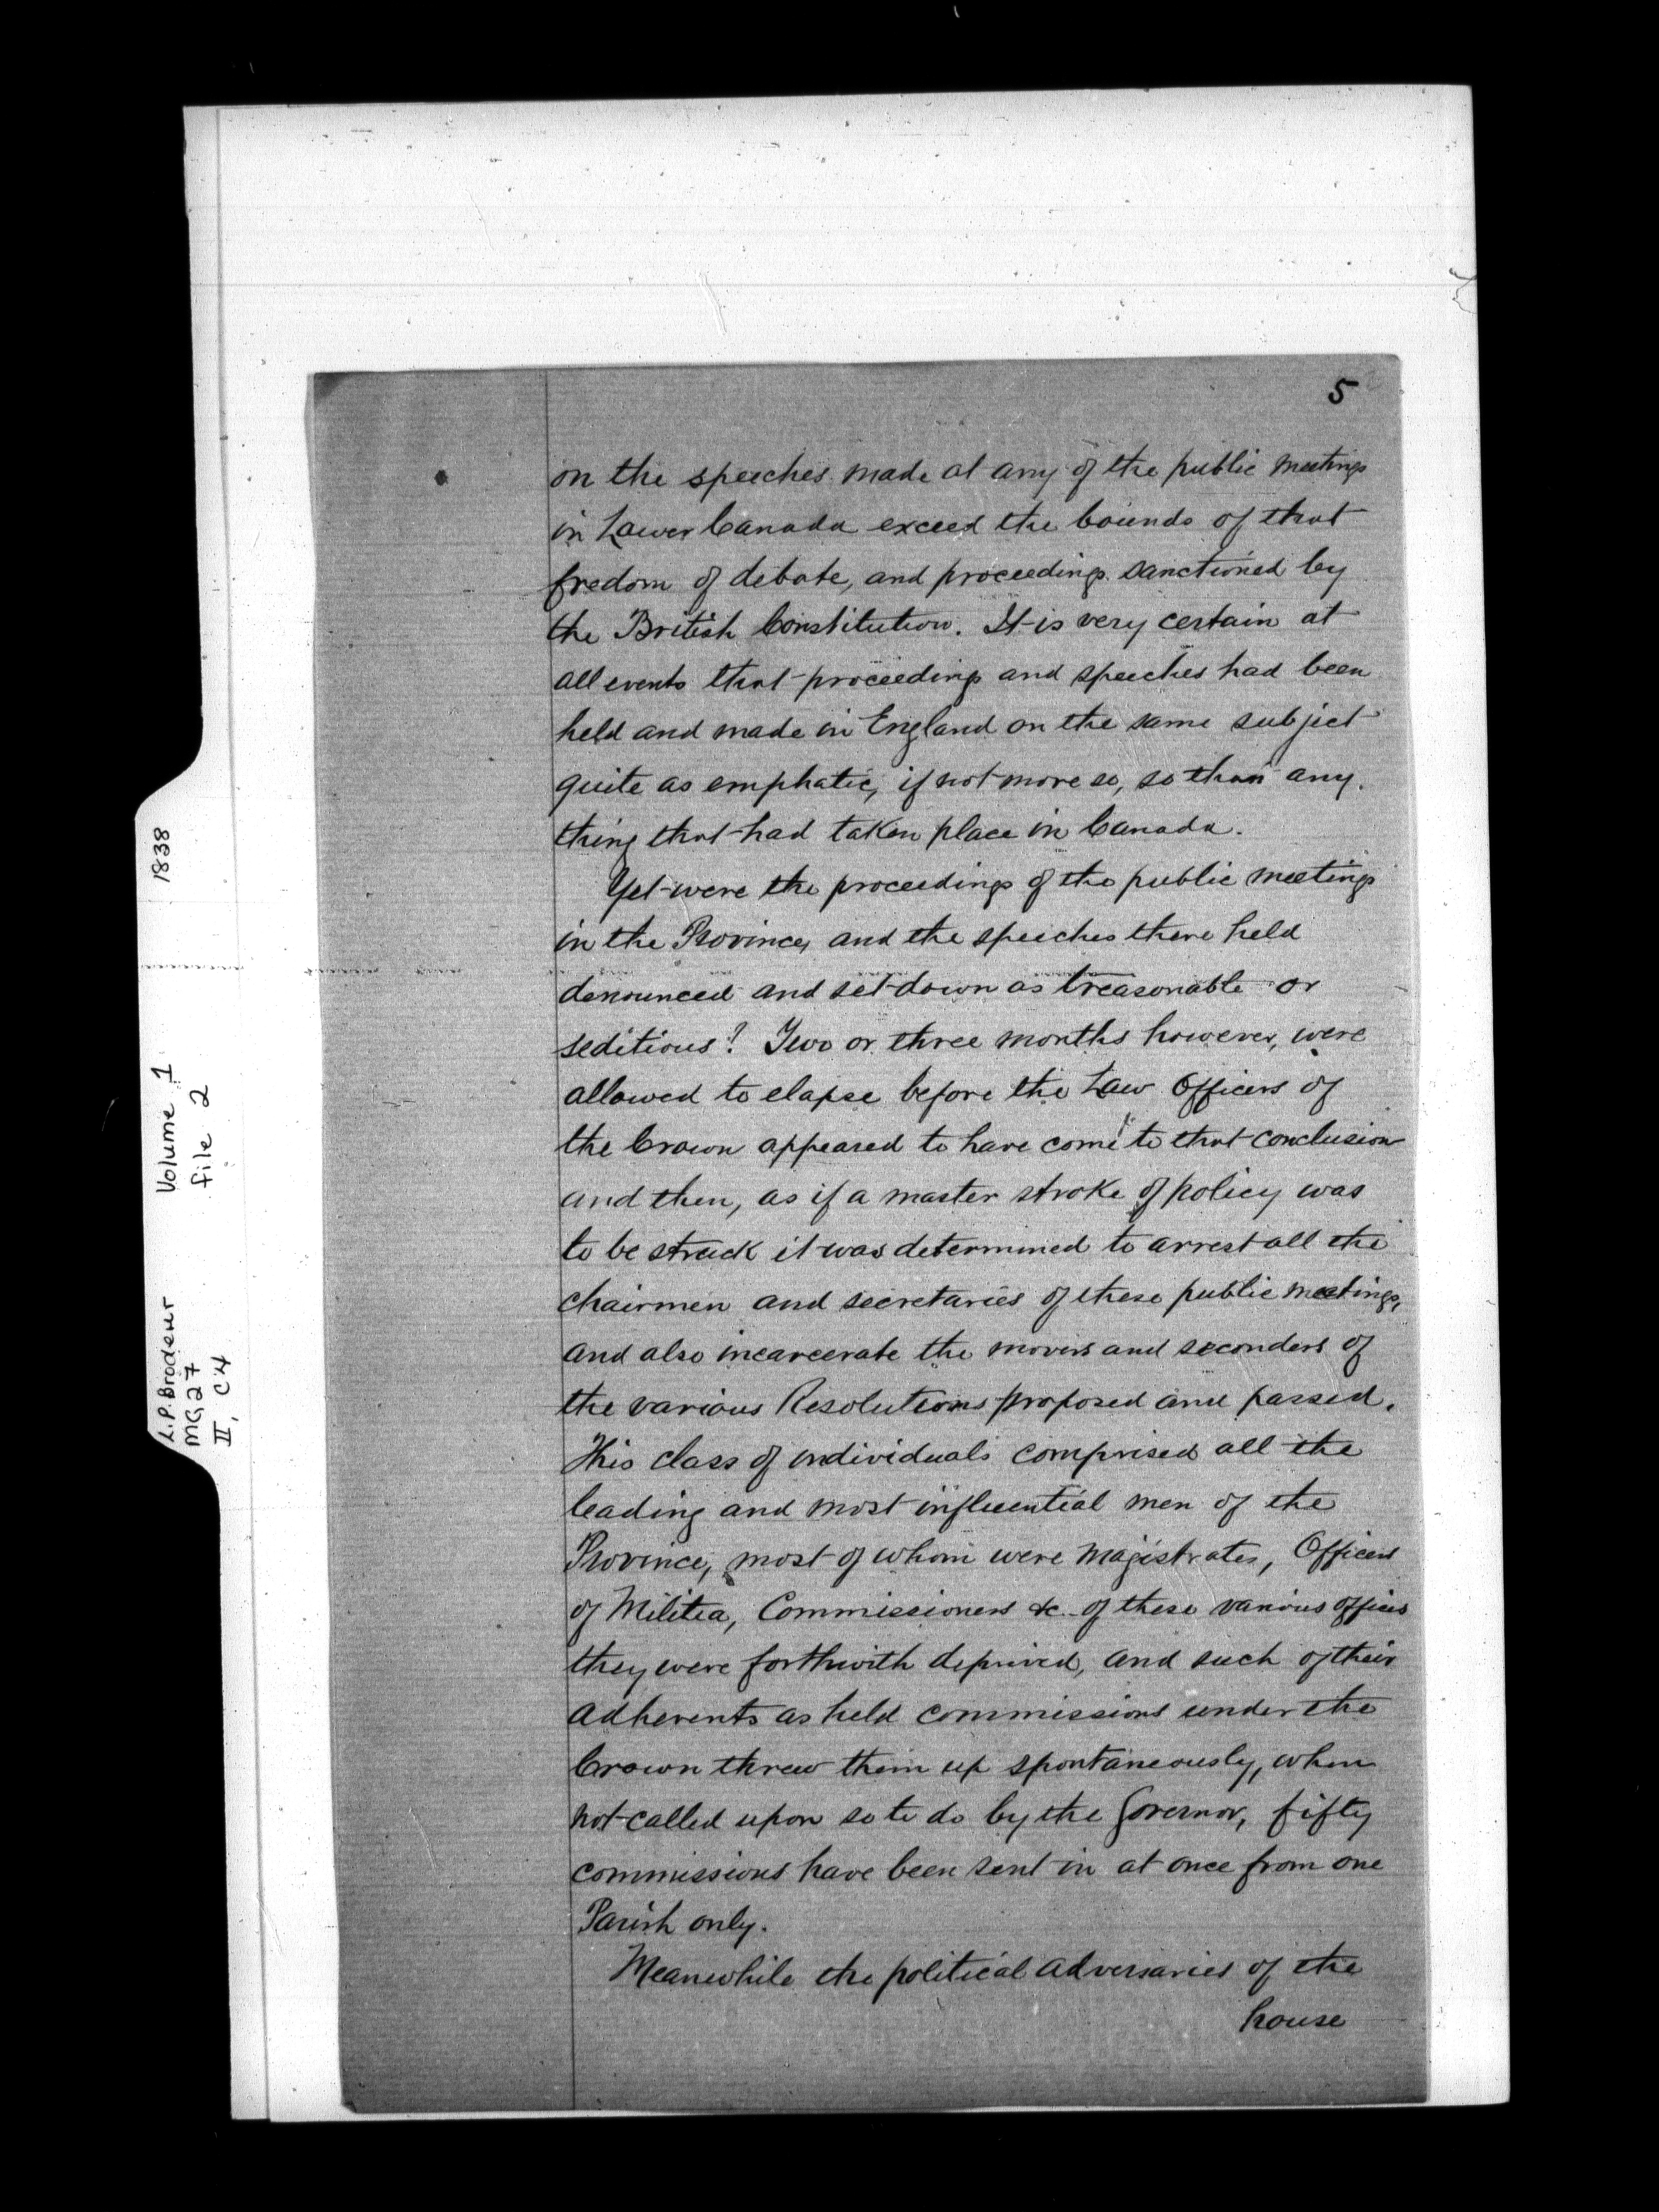 5
on the speeches made at any of the public meetings
in Lower Canada exceed the bounds of that
fredom of debate, and proceedings sanctioned by
the British Constitution. It is very certain at
all events that proceedings and speeches had been
held and made in England on the same subject
quite as emphatic, if not more so, so than any
thing that had taken place in Canada.
Yet were the proceedings of the public meetings
in the Province, and the speeches there held
denounced and set down as treasonable or
seditious! Two or three months however, were
allowed to elapse before the Law Officers of
the Crown appeared to have come to that conclusion
and then, as if a master stroke of policy was
to be struck it was determined to arrest all the
chairmen and secretaries of these public meetings,
and also incarcerate the movers and seconders of
the various Resolutions proposed and passed.
This class of individuals comprised all the
leading and most influential men of the
Province, most of whom were Magistrates, Officers
of Militia, Commissioners &c. of these various offices
they were forthwith deprived, and such of their
adherents as held commissions under the
Crown threw them up spontaneously, when
not called upon so to do by the Governor, fifty
commissions have been sent in at once from one
Parish only.
Meanwhile the political adversaries of the
house
L.P. Brodeur Volume 1 1838
MG27 file 2
II, C4